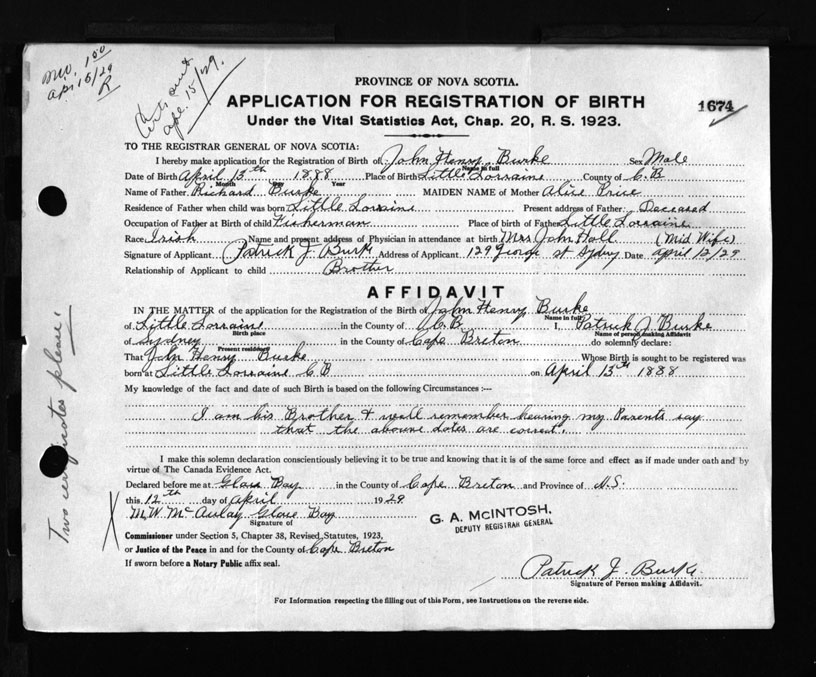 MO. 1.00
Apr 15/29
R
Certs sent
Apr. 15/29.
PROVINCE OF NOVA SCOTIA.
APPLICATION FOR REGISTRATION OF BIRTH
1674
Under the Vital Statistics Act, Chap. 20, R. S. 1923.
TO THE REGISTRAR GENERAL OF NOVA SCOTIA:
I hereby make application for the Registration of Birth of John Henry Burke Sex Male
Name in full
Date of Birth April 13th 1888 Place of Birth Little Lorraine County of C.B
Month Day Year
Name of Father Richard Burke MAIDEN NAME of Mother Alice Price
Residence of Father when child was born Little Lorraine Present address of Father: Deceased
Occupation of Father at Birth of child Fisherman Place of birth of Father Little Lorraine
Race Irish Name and present address of Physician in attendance at birth Mrs John Holl (Mid Wife)
Signature of Applicant Patrick J. Burke Address of Applicant 129 George st Sydney Date April 12/29
Relationship of Applicant to child Brother
AFFIDAVIT
IN THE MATTER of the application for the Registration of the Birth of John Henry Burke
Name in full
of Little Lorraine in the County of C.B I, Patrick J. Burke
Birth place Name of person making Affidavit
of Sydney in the County of Cape Breton do solemnly declare:
Present residence
That John Henry Burke Whose Birth is sought to be registered was
born at Little Lorraine C B on April 13th 1888
My knowledge of the fact and date of such Birth is based on the following Circumstances :—
I am his Brother & well remember hearing my Parents say
that the above dates are correct.
I make this solemn declaration conscientiously believing it to be true and knowing that it is of the same force and effect as if made under oath and by
virtue of The Canada Evidence Act.
Declared before me at Glace Bay in the County of Cape Breton and Province of N.S.
this 12th day of April 1929
M.W. McAulay Glace Bay
Signature of
G. A. McINTOSH,
DEPUTY REGISTRAR GENERAL
Commissioner under Section 5, Chapter 38, Revised Statutes, 1923,
or Justice of the Peace in and for the County of Cape Breton
If sworn before a Notary Public affix seal.
Patrick J. Burke
Signature of Person making Affidavit.
For Information respecting the filling out of this Form, see Instructions on the reverse side.
Two certificates please!